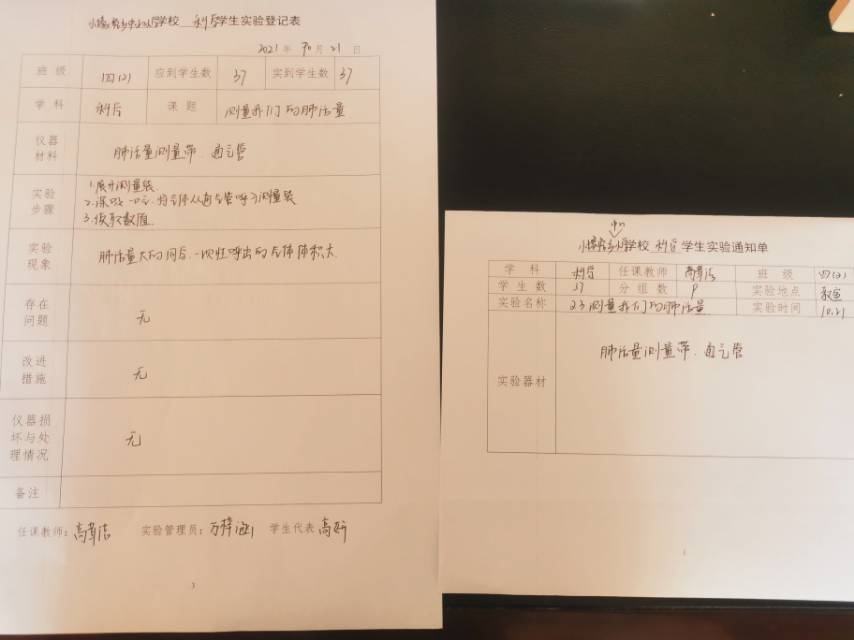 学校 科学 学生实验登记表
2021 年 10 月 21 日
班 级 四(2) 应到学生数 37 实到学生数 37
学 科 科学 课 题 测量我们的肺活量
仪器材料 肺活量测量带、通气管
实验步骤 1.展开测量袋.
2.深吸一口气.将气体从通气管呼入测量袋
3.读取数值.
实验现象 肺活量大的同学.一次性呼出的气体体积大.
存在问题 无
改进措施 无
仪器损坏与处理情况 无
备注
任课教师: 高章洁 实验管理员: 万 学生代表 高妍
3
中心
学校 科学 学生实验通知单
学 科 科学 任课教师 高章洁 班 级 四(2)
学 生 数 37 分 组 数 9 实验地点 教室
实验名称 2.3测量我们的肺活量 实验时间 10.21
实验器材 肺活量测量带、通气管